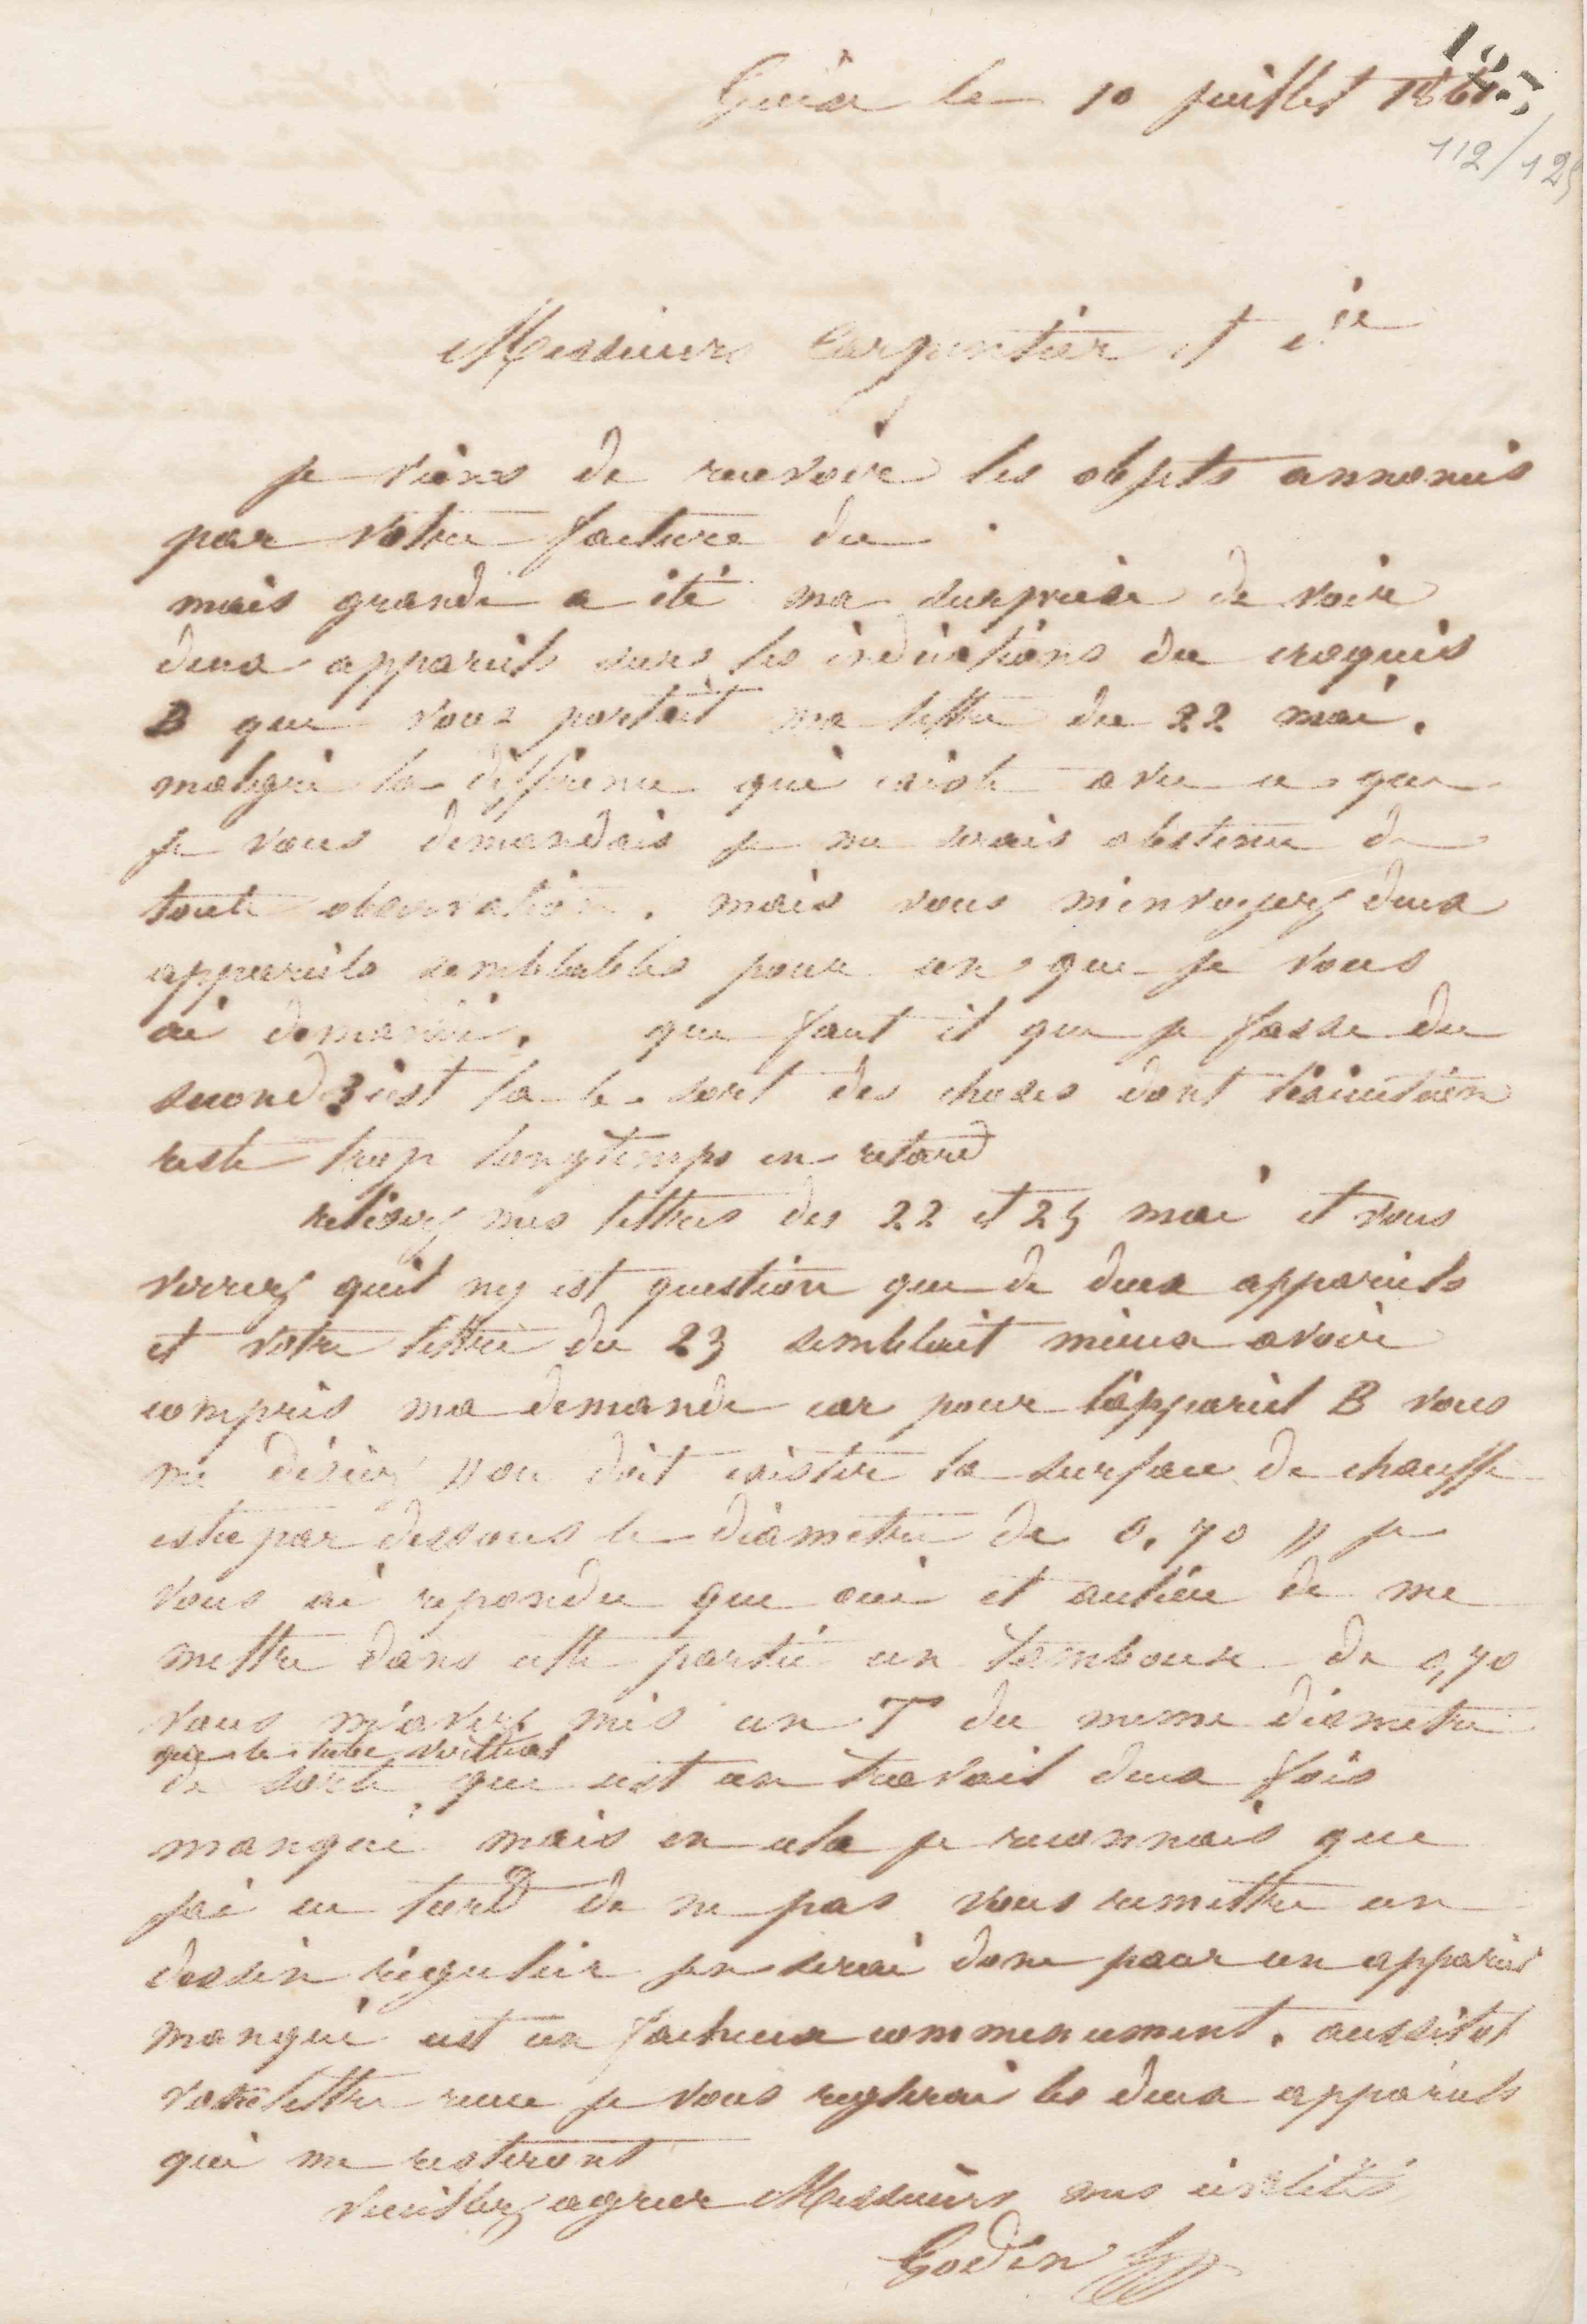 Guise le 10 juillet 1861
125
112/125
Messieurs Carpentier et Cie
je viens de recevoir les objets annoncés
par votre facture du .
mais grande a été ma surprise de voir
deux appareils sur les indications du croquis
B que vous portait ma lettre du 22 mai.
malgré la différence qui existe avec ce que
je vous demandais je me serais abstenu de
toute observation. mais vous m'envoyez deux
appareils semblables pour un que je vous
ai demandé. que faut il que je fasse du
second c'est la le sort des choses dont l'exécution
reste trop longtemps en retard
relisez mes lettres des 22 et 25 mai et vous
verrez quil ny est question que de deux appareils
et votre lettre du 23 semblait mieux avoir
compris ma demande car pour l'appareil B vous
me disiez "ou doit exister la surface de chauffe
estce par dessous le diamètre de 0,70" je
vous ai repondu que oui et aulieu de me
mettre dans cette partie un tambour de 0,70
vous m'avez mis un T du meme diametre
que le tube vertical
de sorte que cest un travail deux fois
manqué mais en cela je reconnais que
jai eu tord de ne pas vous remettre un
dessin régulier jen serai donc pour un appareil
manqué cest un facheux commencement. aussitot
votre lettre recue je vous reglerai les deux appareils
qui me resteront
veuillez agreer Messieurs mes civilités
Godin